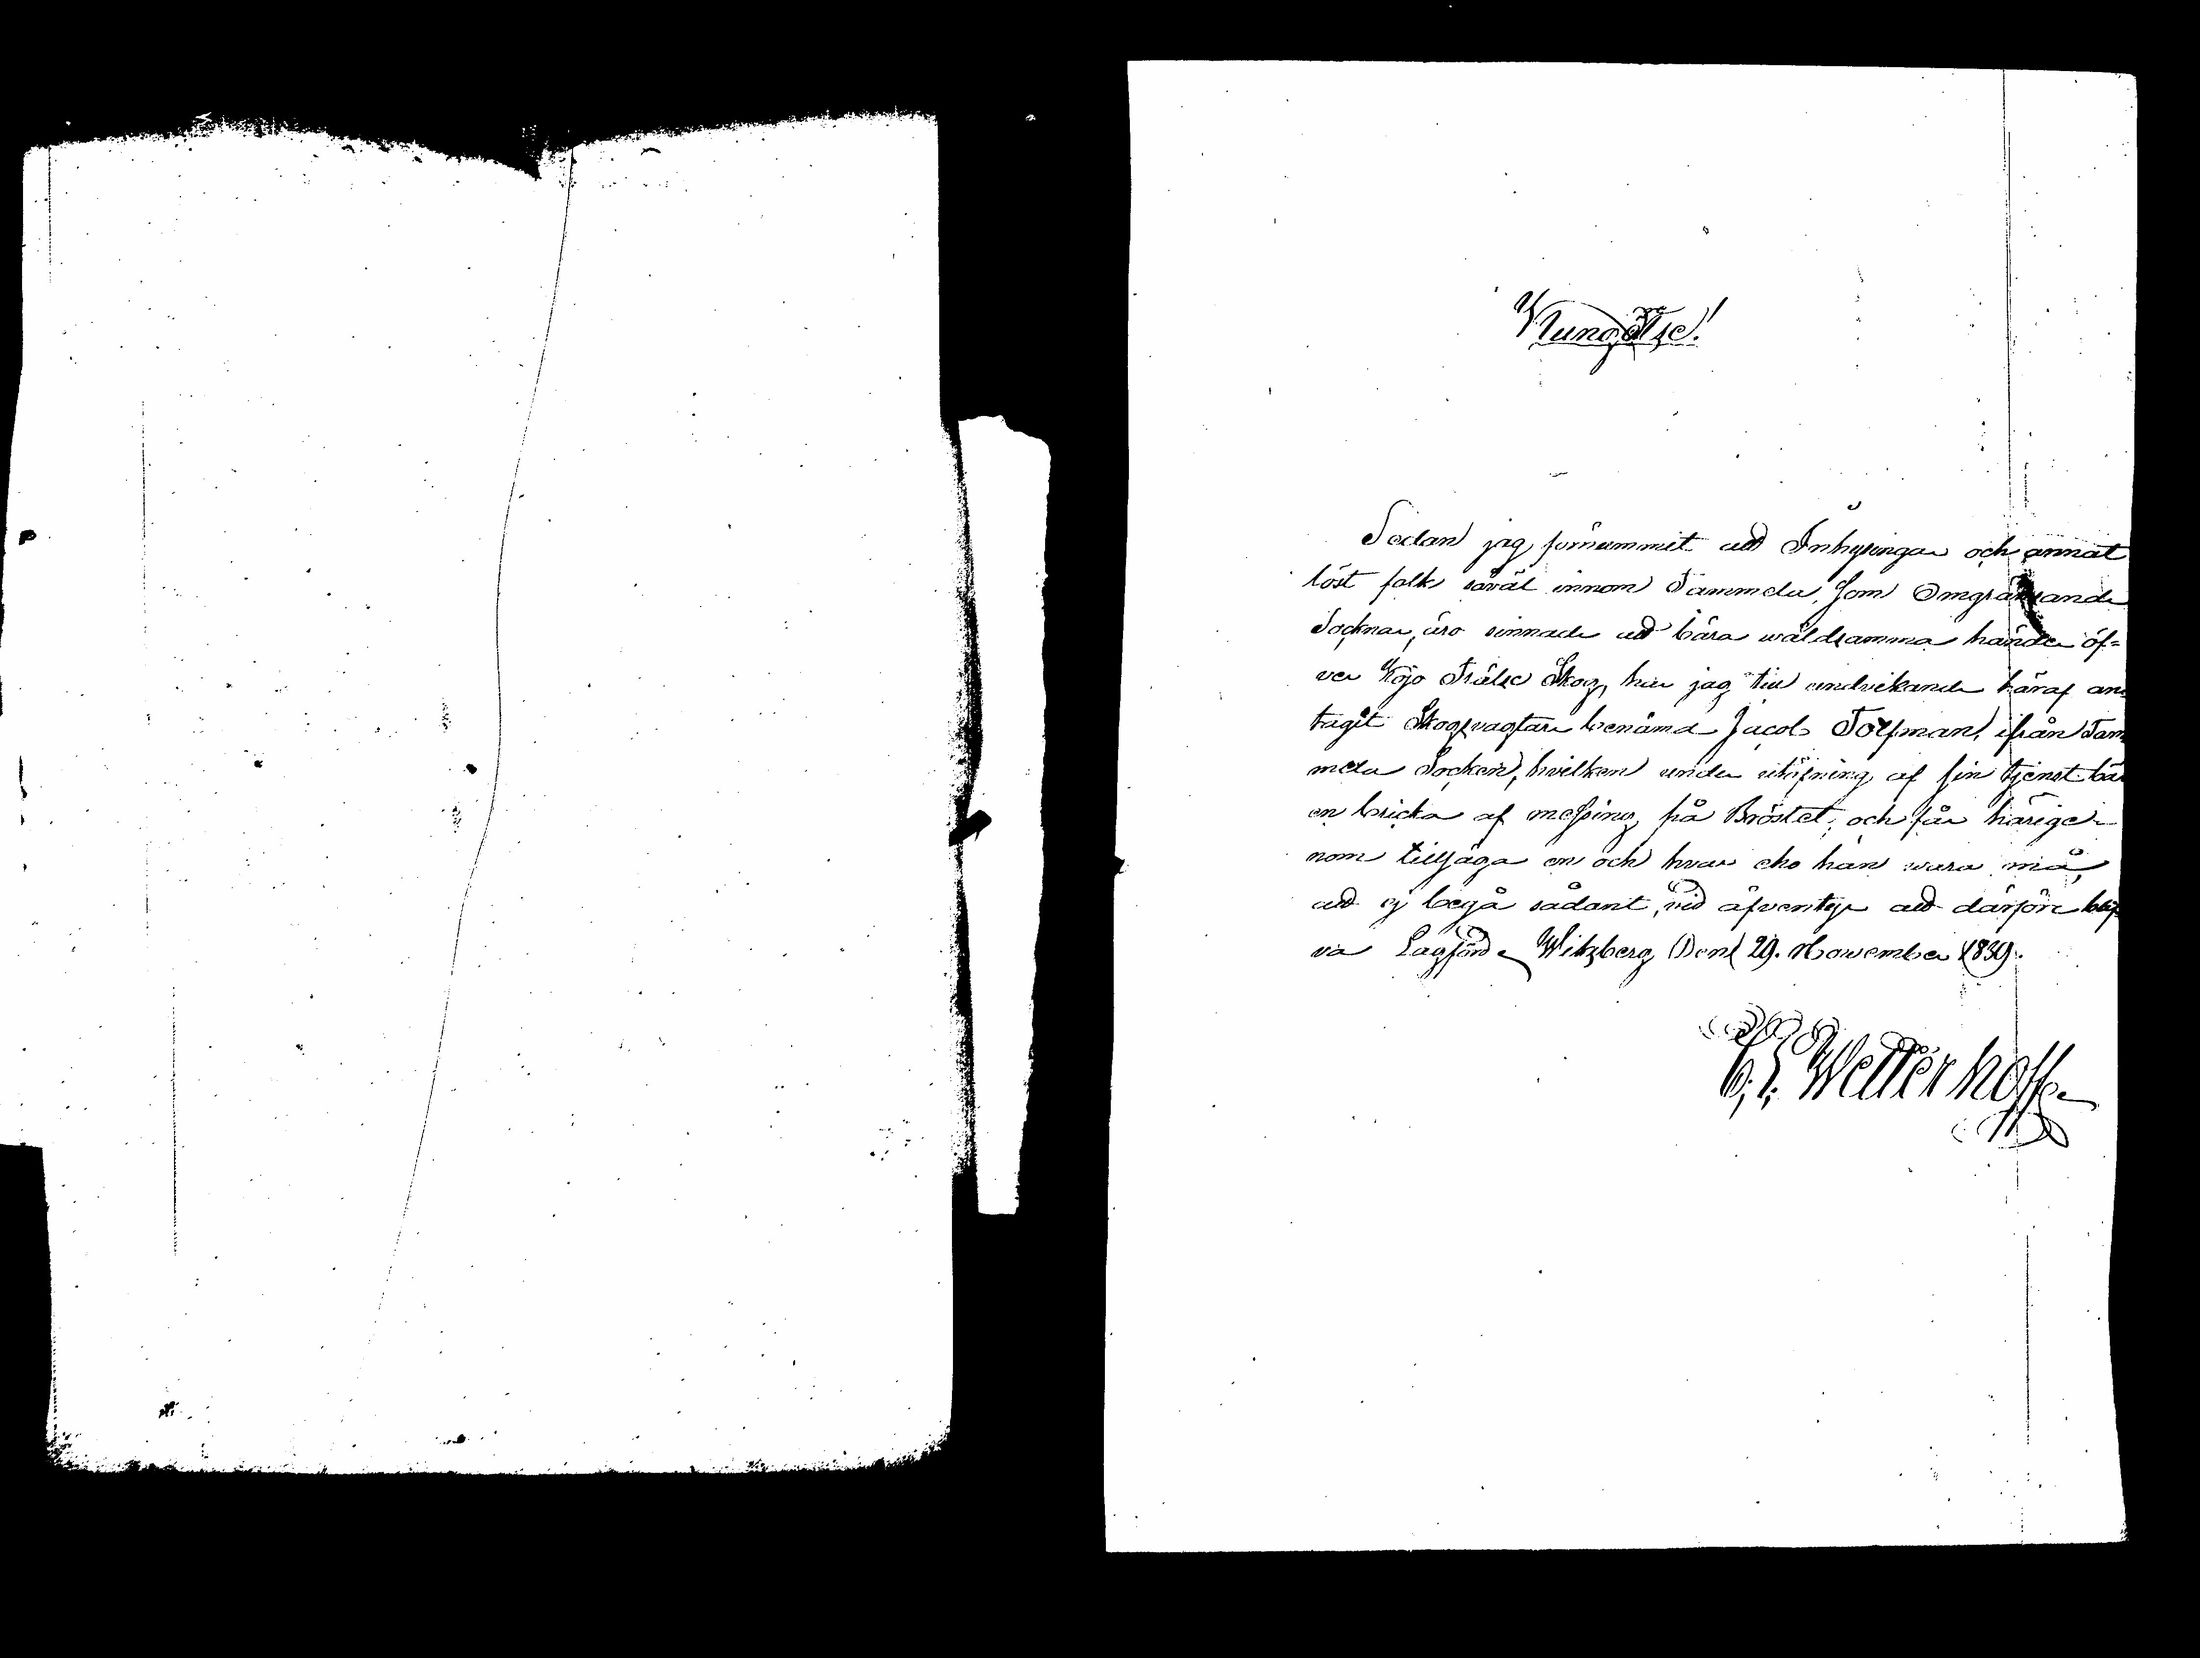 Kungörelse!
Sedan jag förnummit att Inhysingar och annat
löst folk såväl innom Tammela, som Omgränsande
Socknar, äro sinnade att bära wåldsamma händer öf-
ver Kojo Frälse Skog, har jag till undvikande häraf an-
tagit Skogsvagtare benämd Jacob Torfman, ifrån Tam
mela Socken, hvilken under utöfning af sin tjenst bär
en bricka af messing på Bröstet, och får härige-
nom tillsäga en och hvar eho han wara må,
att ej begå sådant, vid äfventyr att därföre blif
va Lagförd. Witzberg Den 29. November 1839.
C. G. Wetterhoff